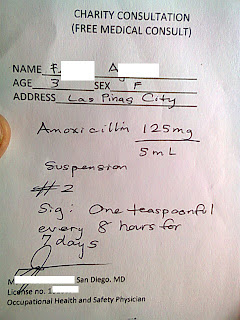 CHARITY CONSULTATION
(FREE MEDICAL CONSULT)
NAME F. A
AGE 3 SEX F
ADDRESS Las Piñas City
Amoxicillin 125mg
5mL
Suspension
#2
Sig: One teaspoonful
every 8 hours for
7 days
M San Diego, MD
License no. 1
Occupational Health and Safety Physician